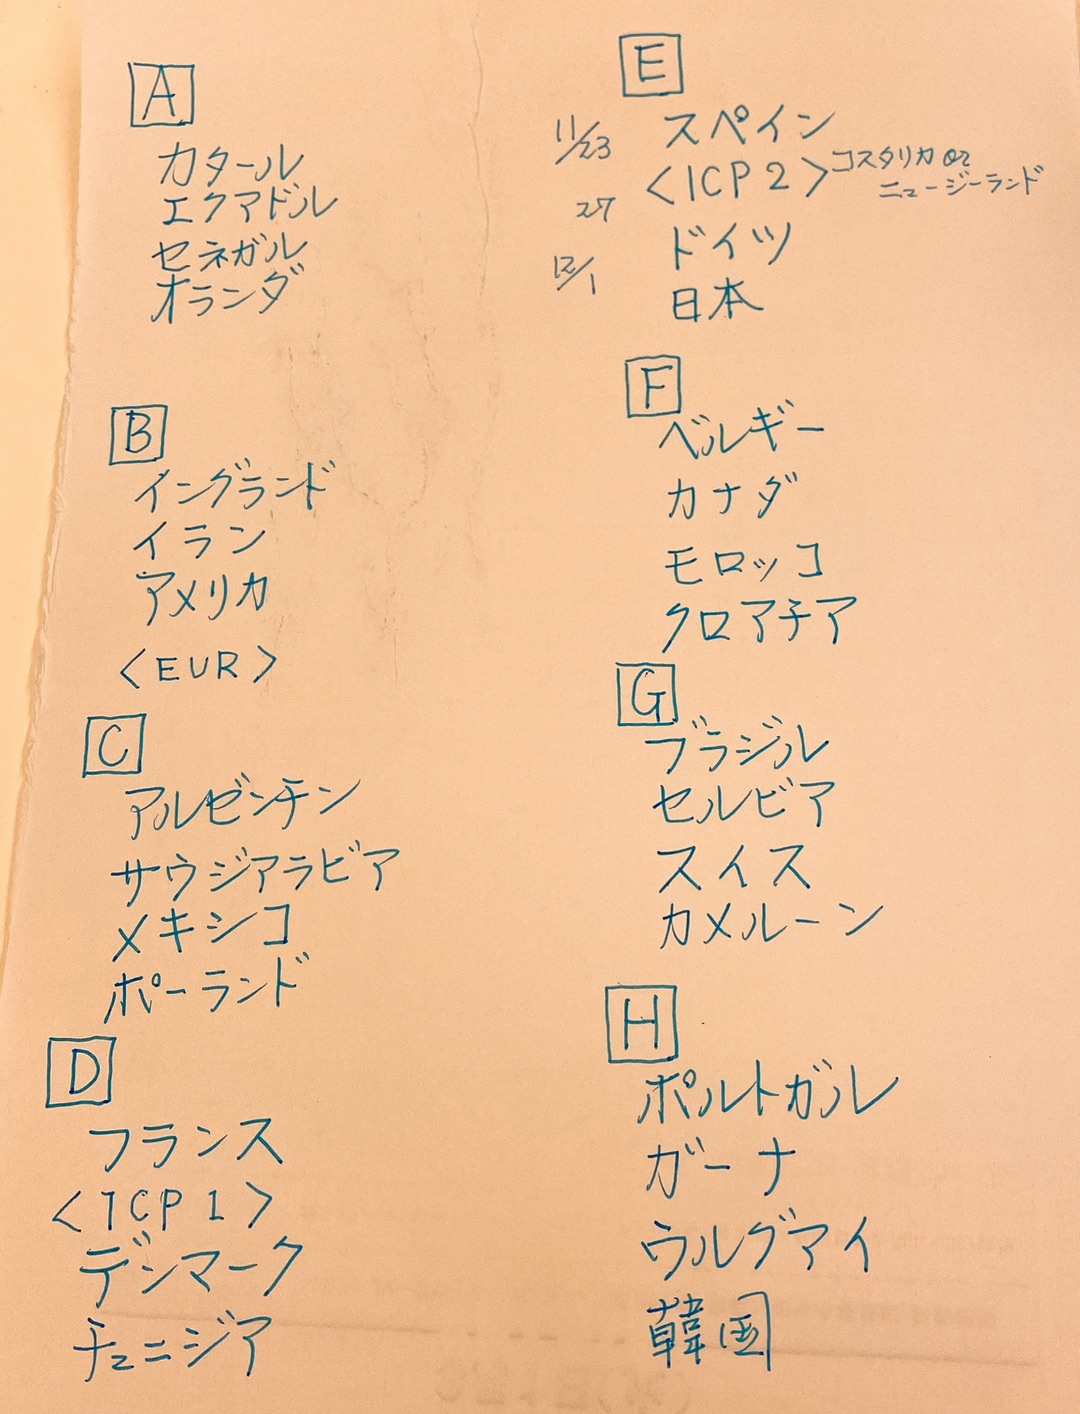 A
カタール
エクアドル
セネガル
オランダ
B
イングランド
イラン
アメリカ
<EUR>
C
アルゼンチン
サウジアラビア
メキシコ
ポーランド
D
フランス
<ICP1>
デンマーク
チュニジア
E
11/23 スペイン
<ICP2> コスタリカ or
ニュージーランド
27
ドイツ
12/1
日本
F
ベルギー
カナダ
モロッコ
クロアチア
G
ブラジル
セルビア
スイス
カメルーン
H
ポルトガル
ガーナ
ウルグアイ
韓国